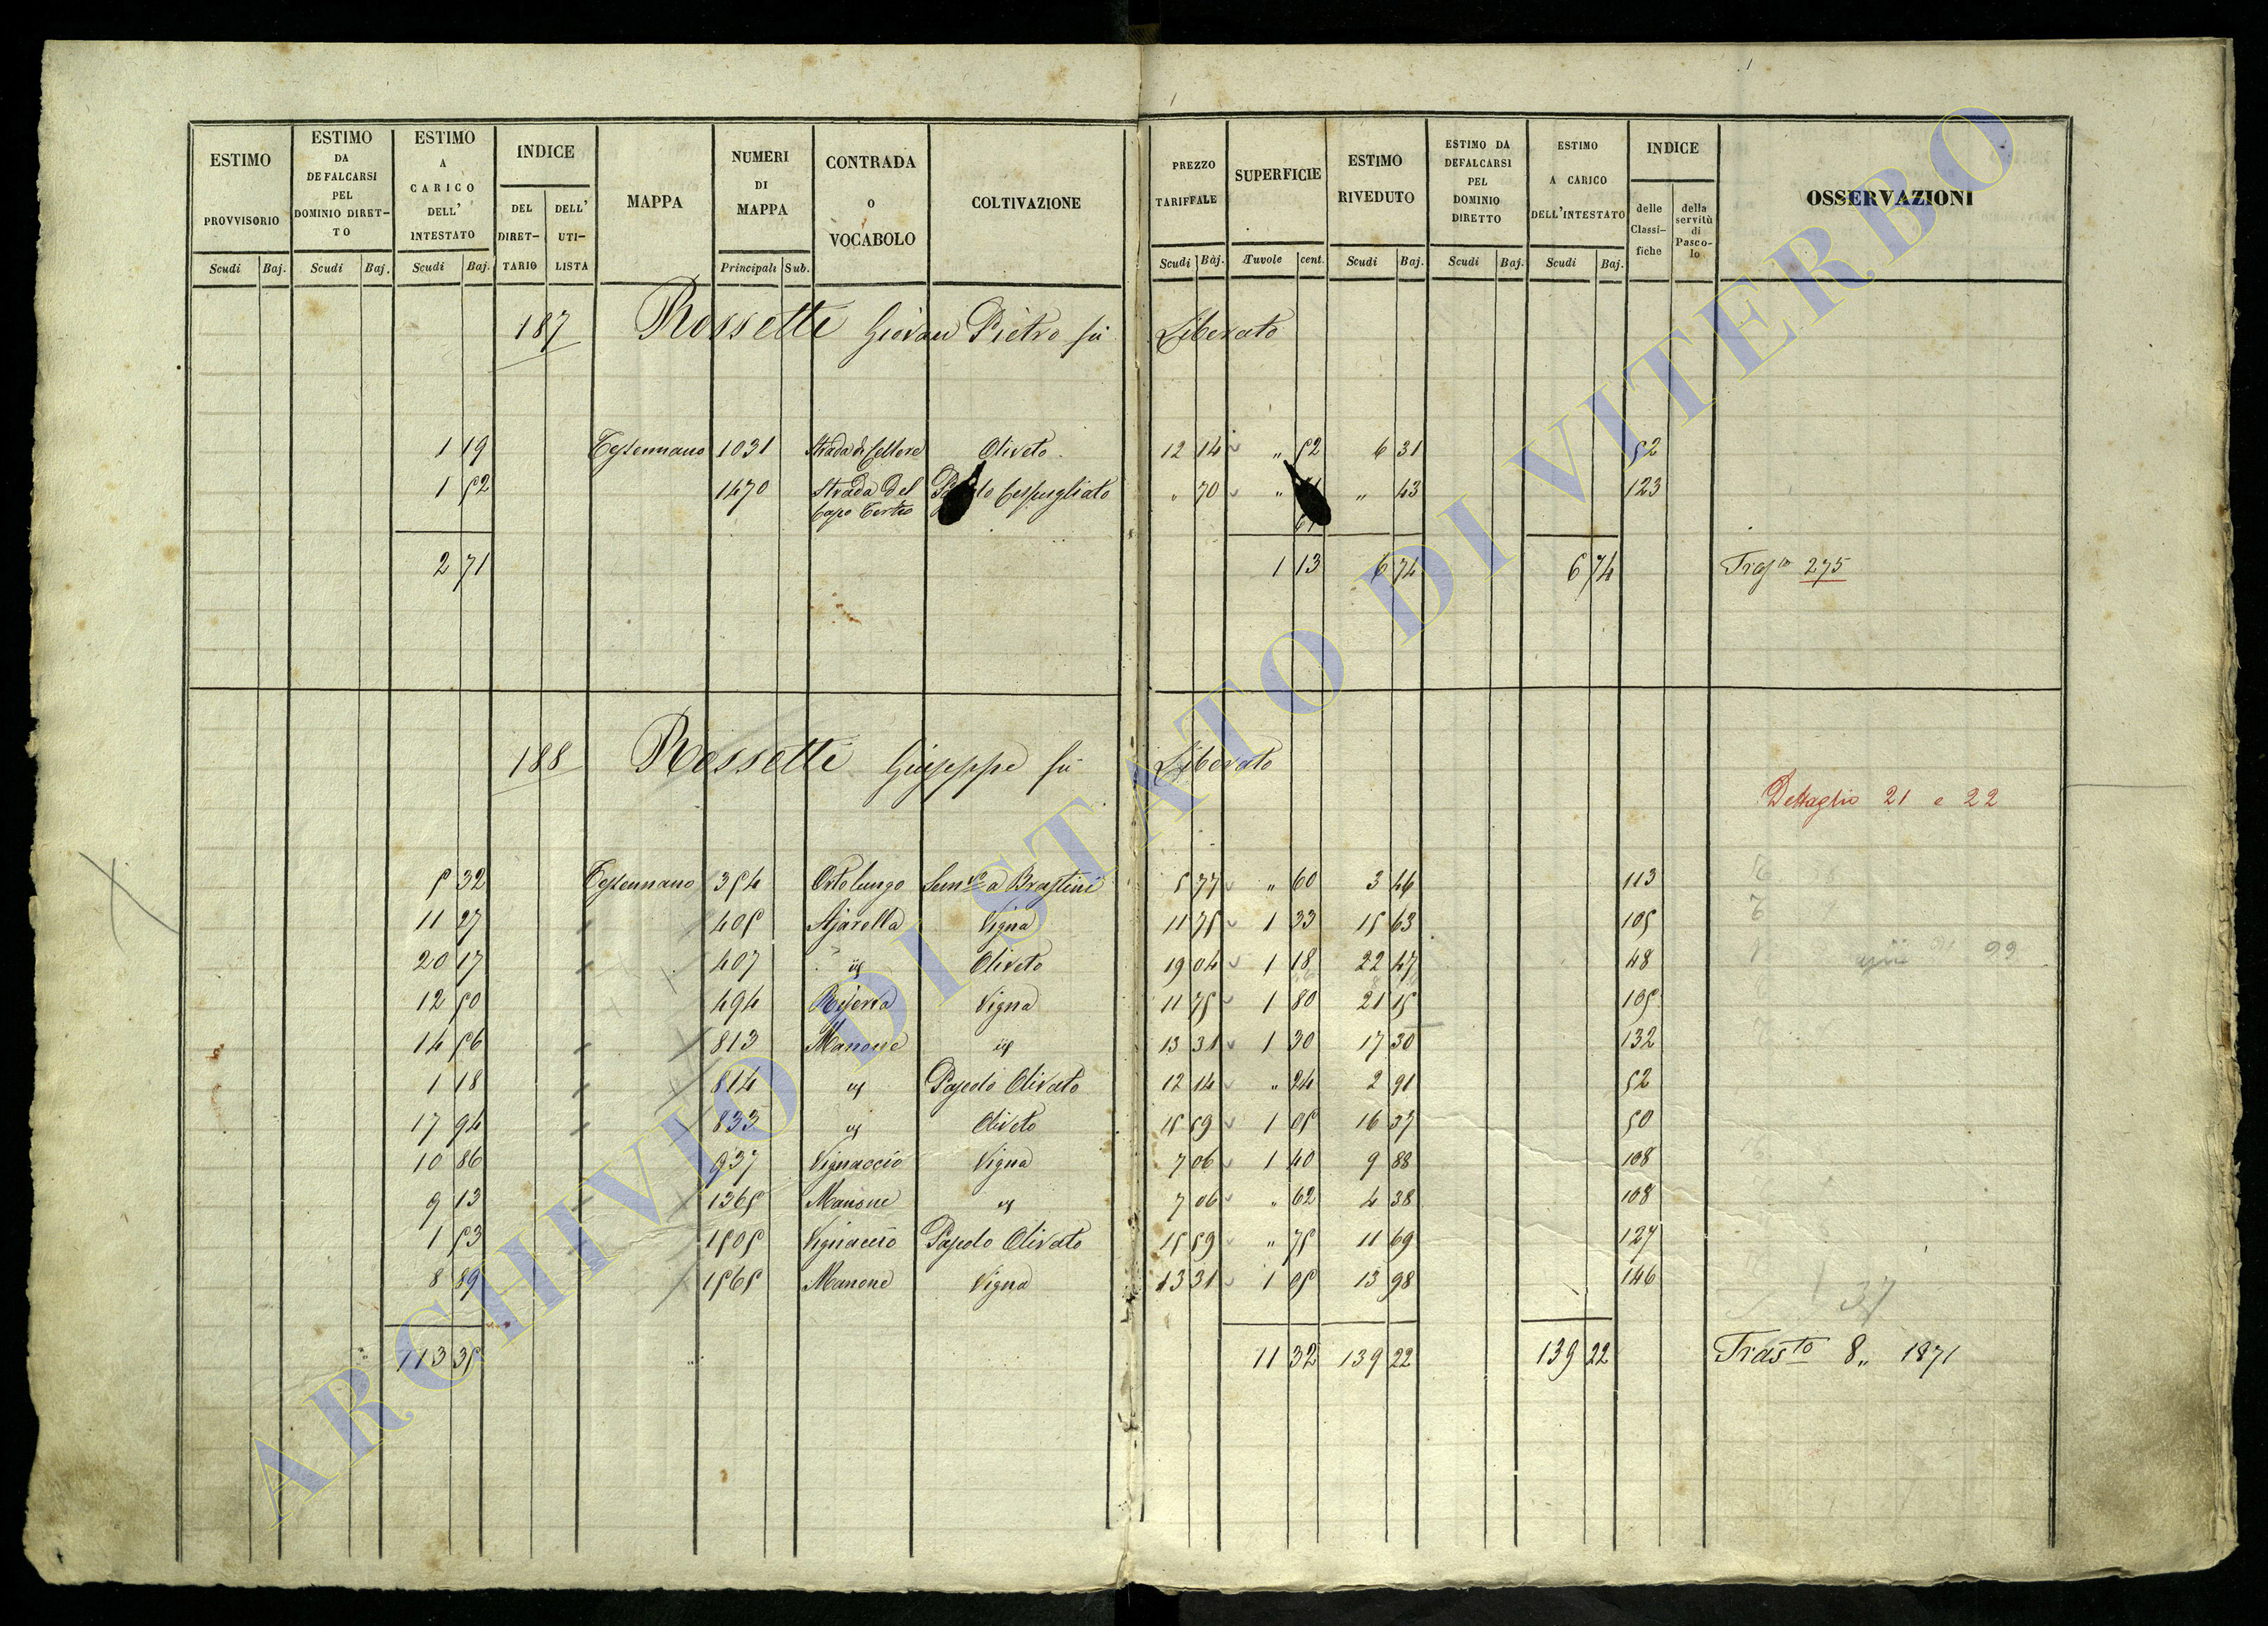 ESTIMO PROVVISORIO Scudi Baj.
ESTIMO DA DEFALCARSI PEL DOMINIO DIRET-TO Scudi Baj.
ESTIMO A CARICO DELL' INTESTATO Scudi Baj.
INDICE DEL DIRET-TARIO DELL' UTI-LISTA
MAPPA
NUMERI DI MAPPA Principali Sub.
CONTRADA O VOCABOLO
COLTIVAZIONE
PREZZO TARIFFALE Scudi Baj.
SUPERFICIE Tuvole cent.
ESTIMO RIVEDUTO Scudi Baj.
ESTIMO DA DEFALCARSI PEL DOMINIO DIRETTO Scudi Baj.
ESTIMO A CARICO DELL'INTESTATO Scudi Baj.
INDICE delle Classi-fiche della servitù di Pasco-lo
OSSERVAZIONI
187 Rossetti Giovan Pietro fù Liberato
1 19 Tessennano 1031 Strada di Cellere Oliveto 12 14 " 52 6 31 52
1 52 1470 Strada del Capo Cespugliato " 70 " " 43 123
61
2 71 1 13 6 74 6 74 Trasto 275
188 Rossetti Giuseppe fù Liberato
Dettaglio 21 e 22
5 32 Tessennano 354 Ortolungo Semvo a 5 77 " 60 3 46 113
11 27 405 Sparella Vigna 11 75 1 33 15 63 105
20 17 407 id Oliveto 19 04 1 18 22 47 48
12 50 494 Riserva Vigna 11 75 1 80 21 15 105
14 56 813 Manone id 13 31 1 30 17 30 132
1 18 814 id Pascolo Olivato 12 14 " 24 2 91 52
17 94 833 id Oliveto 15 59 1 05 16 37 50
10 86 937 Vignaccio Vigna 7 06 1 40 9 88 108
9 13 1365 Manone id 7 06 " 62 4 38 108
1 53 1505 Vignaccio Pascolo Olivato 15 59 " 75 11 69 127
8 89 1565 Manone Vigna 13 31 1 05 13 98 146
37
113 35 11 32 139 22 139 22 Trasto 8,, 1871
ARCHIVIO DI STATO DI VITERBO